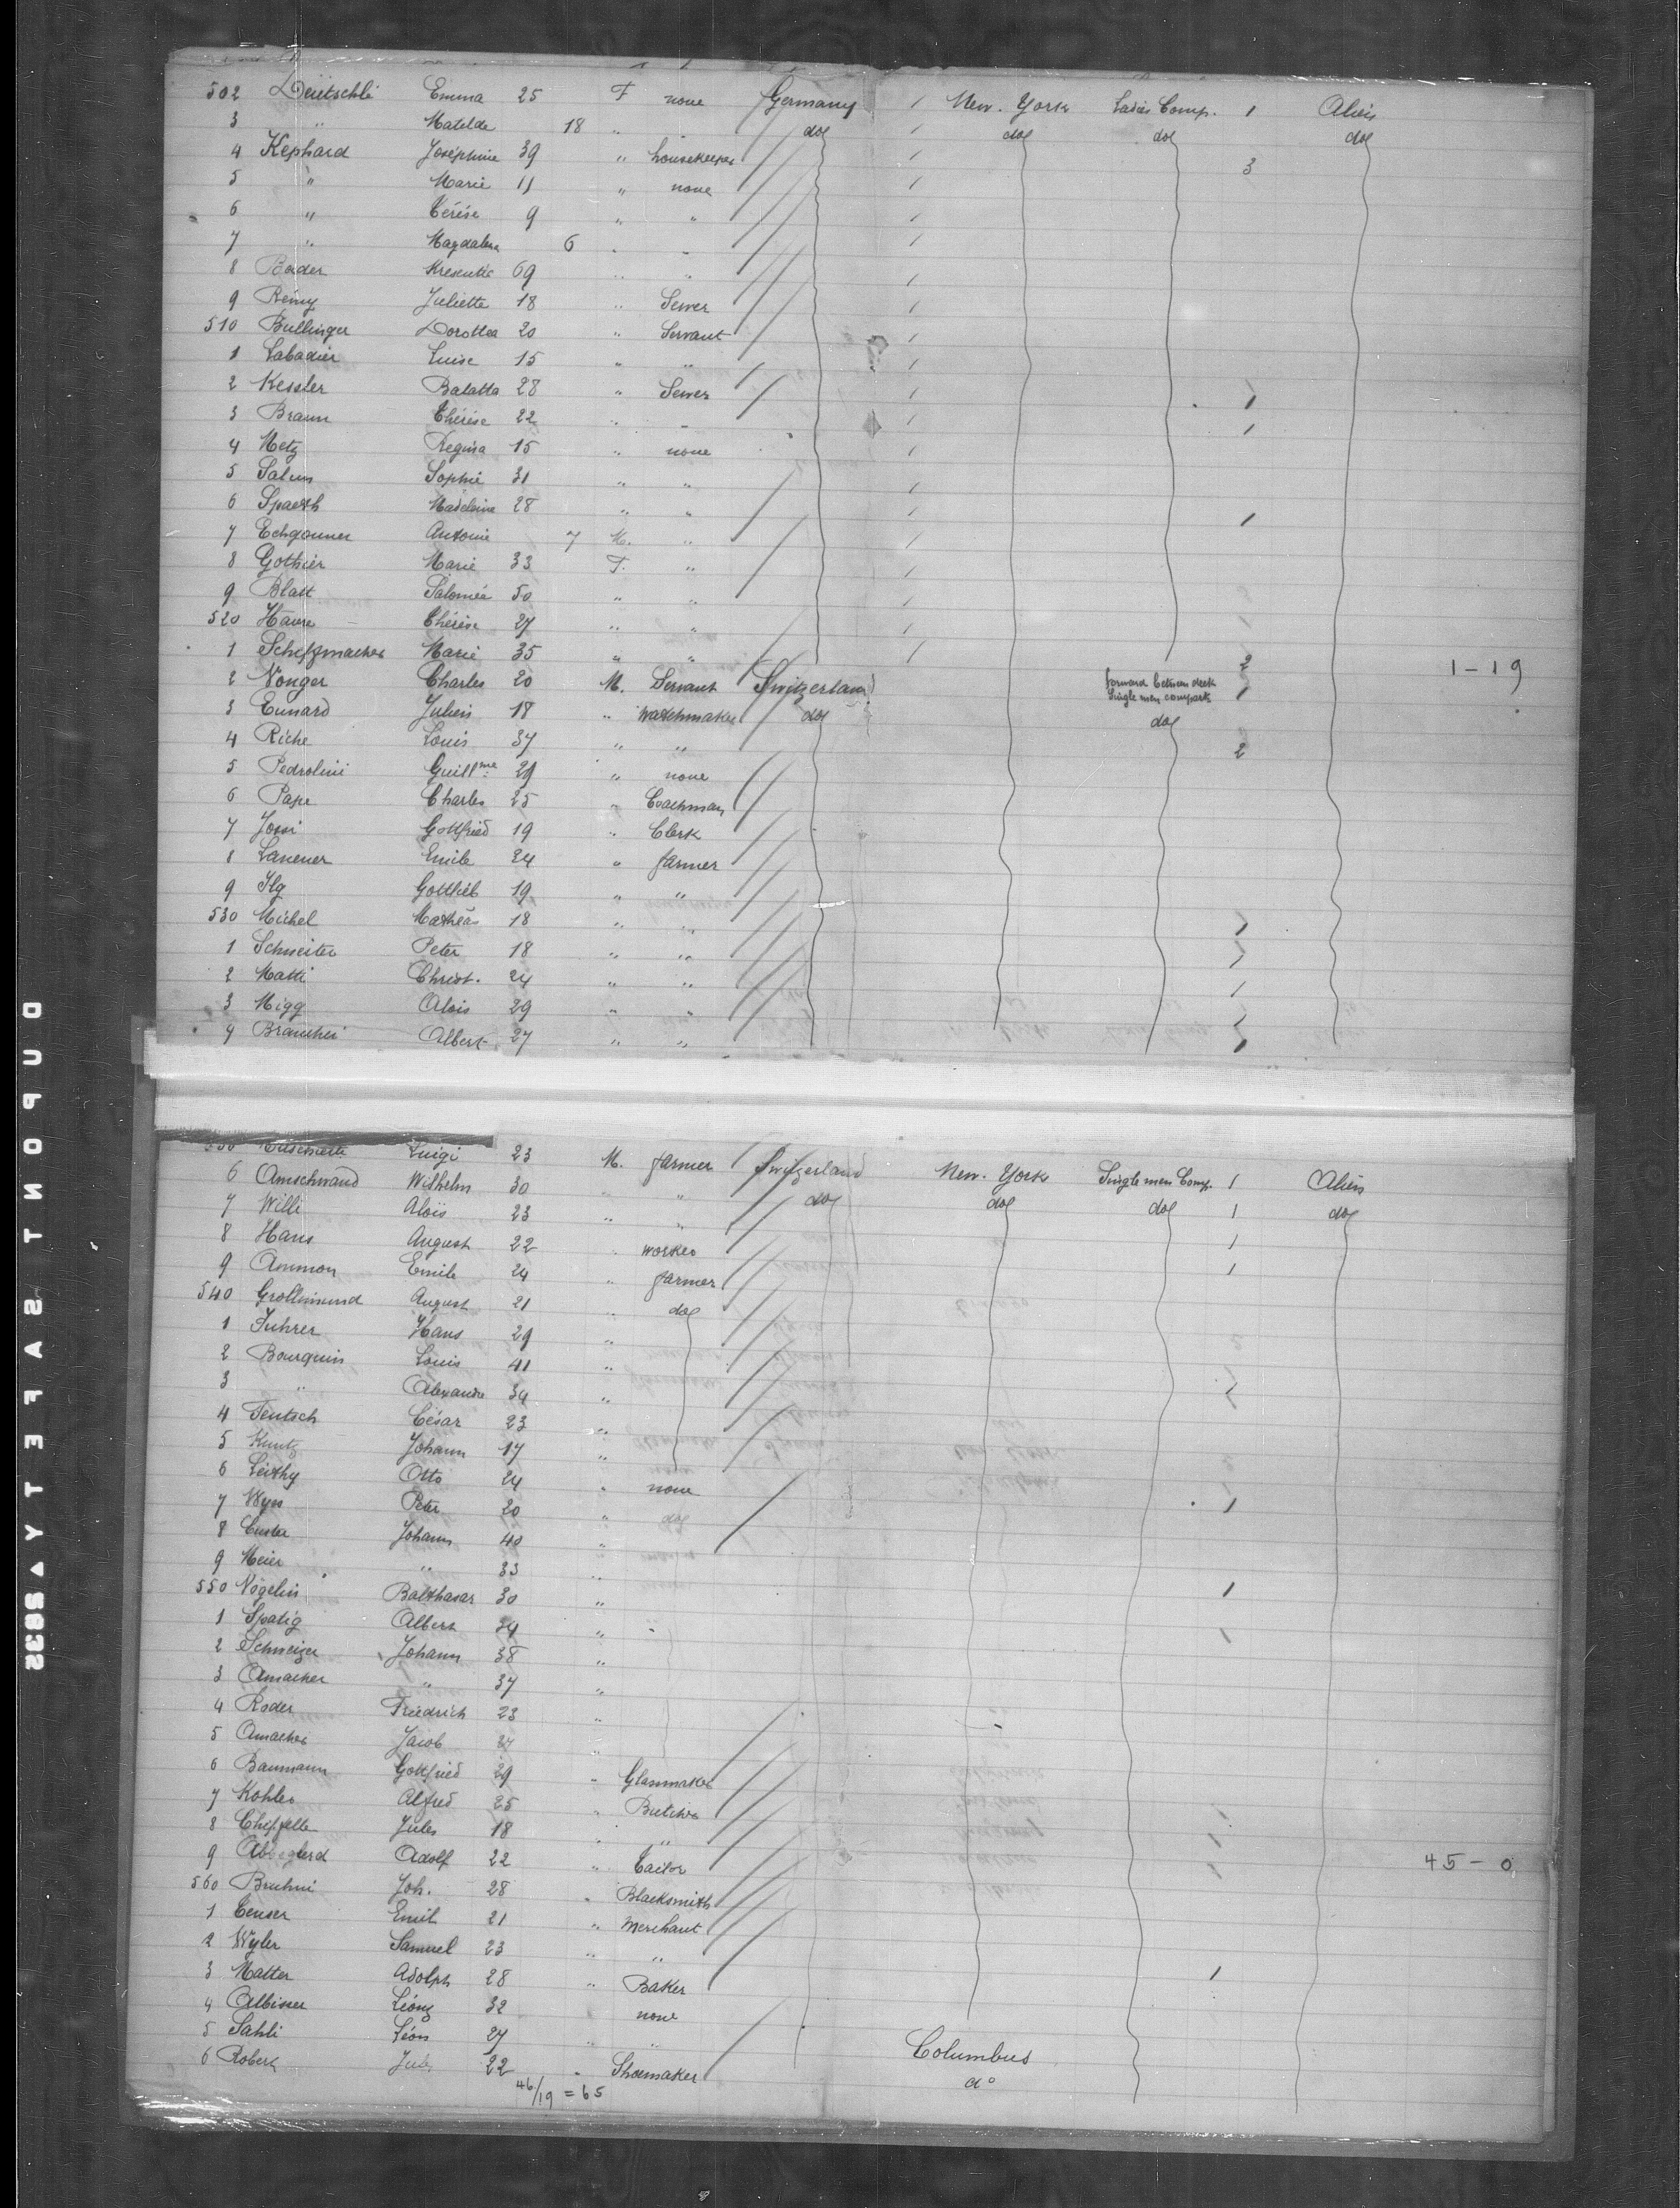 502 Deütschli Emma 25 F none Germany / New. York Ladies Comp. 1 Alien
3 " Matelde 18 " " do / do do do
4 Kephard Joséphine 39 " housekeeper / 3
5 " Marie 11 " none /
6 " Térése 9 " " /
7 " Magdalena 6 " " /
8 Bader Kreszentia 69 " " /
9 Remy Juliette 18 " Sewer /
510 Bullinger Dorottea 20 " Servant /
1 Labadier Luise 15 " " /
2 Kessler Balatta 28 " Sewer / 1
3 Braun Thérése 22 " " / 1
4 Metz Regina 15 " none /
5 Salm Sophie 31 " " /
6 Spaeth Madeleine 28 " " / 1
7 Antoine 7 M. " /
8 Gothier Marie 33 F. " /
9 Blatt Salomée 50 " " /
520 Haure Thérése 27 " " /
1 Scheffmacher Marie 35 " " / 2 1-19
2 Nonger Charles 20 M. Servant Switzerland forward between deck Single men compart. 1
3 Eunard Julien 18 " Watchmaker do do
4 Riche Louis 37 " " 2
5 Pedrolini Guillme 29 " none
6 Pape Charles 25 " Coachman
7 Jossi Gottfried 19 " Clerk
8 Lanener Emile 24 " farmer
9 Ilg Gottlieb 19 " "
530 Michel Matheas 18 " " 1
1 Schneiter Peter 18 " " 1
2 Matti Christ. 24 " " 1
3 Migg Alois 29 " " 1
4 Albert 27 " " 1
Luigi 23 M. farmer Switzerland New. York Single men Comp. 1 Alien
6 Amschwand Wilhelm 30 " " do do do 1 do
7 Willi Alois 23 " " 1
8 Hans August 22 " worker 1
9 Ammon Emile 24 " farmer
540 Grollimund August 21 " do
1 Fuhrer Hans 29 "
2 Bourquin Louis 41 "
3 " Alexandre 34 " 1
4 Teutsch César 23 "
5 Kuntz Johann 17 "
6 Leithy Otto 24 " none
7 Wyss Peter 20 " do 1
8 Custer Johann 40 "
9 Meier " 33 "
550 Nögelin Balthasar 30 " 1
1 Spatig Albert 34 " 1
2 Schweizer Johann 38 "
3 Amacher " 37 "
4 Roder Friedrich 23 "
5 Amacher Jacob 27 "
6 Baumann Gottfried 29 " Glassmaker
7 Kohler Alfred 25 " Butcher 1
8 Jules 18 " " 1
9 Adolf 22 " Tailor 1 45-0
560 Bruhni Joh. 28 " Blacksmith
1 Censer Emil 21 " Merchant
2 Wyler Samuel 23 " "
3 Matter Adolph 28 " Baker 1
4 Albisser Léonz 32 " none
5 Sahli Léon 27 " " Columbus
6 Robert Jul. 22 " Shoemaker do
46/19 = 65
DUPONT SAFETY